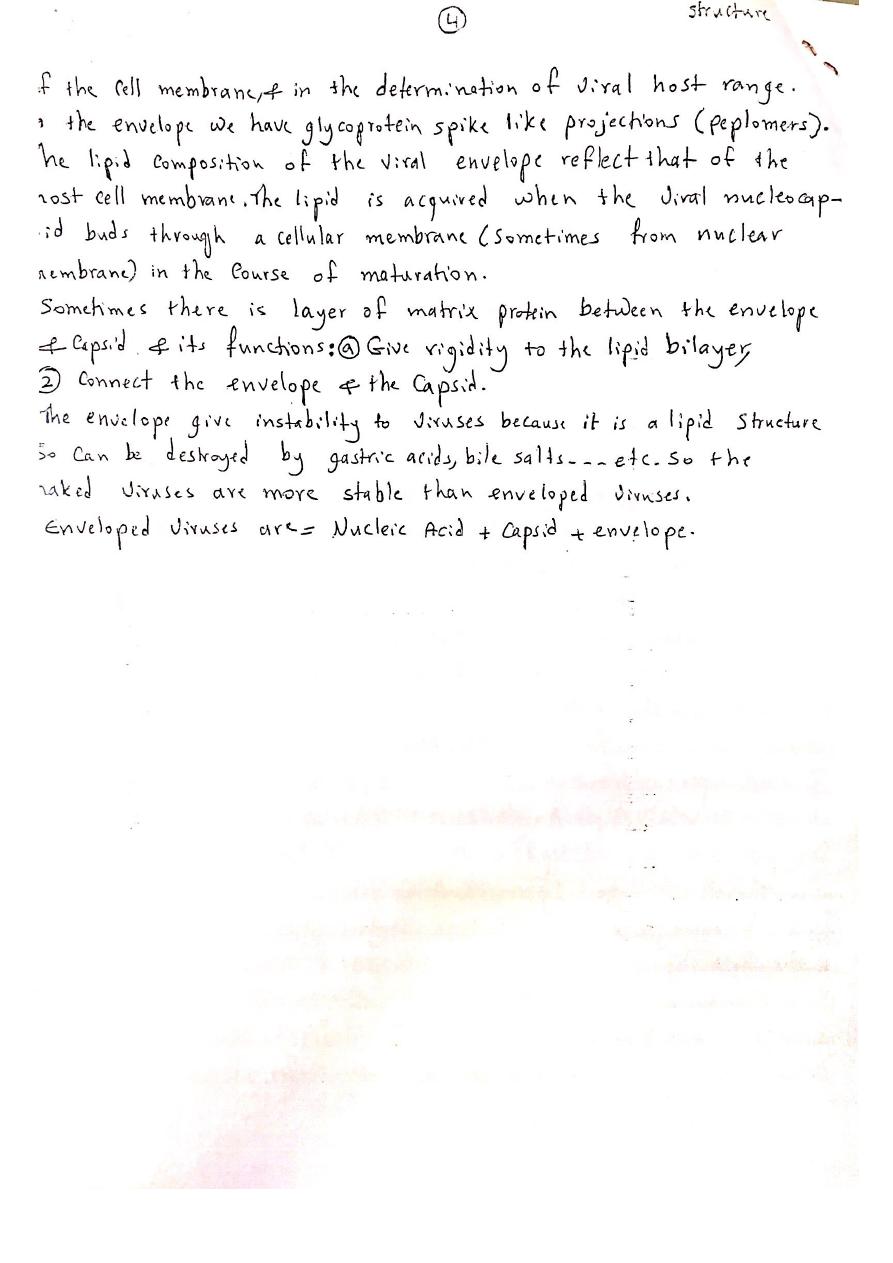 structure
4
f the Cell membrane, & in the determination of viral host range.
the envelope we have glycoprotein spike like projections (peplomers).
he lipid Composition of the viral envelope reflect that of the
ost cell membrane. The lipid is acquired when the viral nucleocap-
id buds through a cellular membrane (Sometimes from nuclear
membrane) in the Course of maturation.
Sometimes there is layer of matrix protein between the envelope
& Capsid & its functions: ⓐ Give rigidity to the lipid bilayer,
② Connect the envelope & the Capsid.
The envelope give instability to viruses because it is a lipid Structure
So Can be destroyed by gastric acids, bile salts---- etc. So the
naked viruses are more stable than enveloped viruses.
Enveloped viruses are = Nucleic Acid + Capsid + envelope.